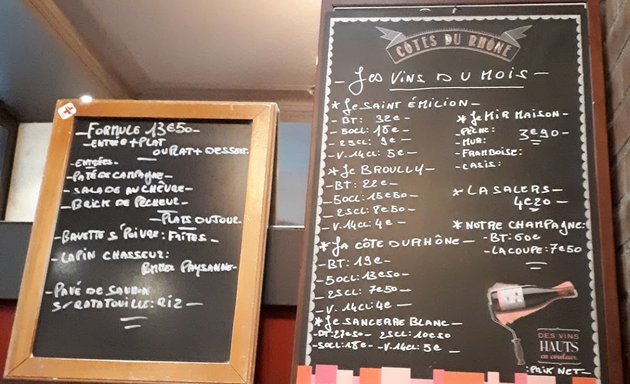 FORMULE 13€50
ENTRÉE + PLAT
OU PLAT + DESSERT
ENTRÉES
PATÉ DE CAMPAGNE
SALADE AU CHÈVRE
BRICK DE PECHEUR
PLATS DU JOUR
BAVETTE S/ POIVRE : FRITES
LAPIN CHASSEUR :
PAYSANNE
PAVÉ DE SAUMON
S/ RATATOUILLE : RIZ
CÔTES DU RHÔNE
LES VINS DU MOIS
* LE SAINT ÉMILION
- BT : 32€
- 50CL : 18€
- 25CL : 9€
- V.14CL : 5€
* LE BROULLY
- BT : 22€
- 50CL : 15€50
- 25CL : 8€50
- V.14CL : 4€
* LA CÔTE DU RHÔNE
- BT : 19€
- 50CL : 13€50
- 25CL : 7€50
- V.14CL : 4€
* LE SANCERRE BLANC
- BT : 27€50 - 25CL : 10€50
- 50CL : 18€ - V.14CL : 5€
* LE KIR MAISON
PÊCHE :
MUR :
FRAMBOISE :
CASIS :
3€90
* LA SALERS
4€20
* NOTRE CHAMPAGNE :
- BT : 60€
- LA COUPE : 7€50
DES VINS
HAUTS
en couleur
: PRIX NET